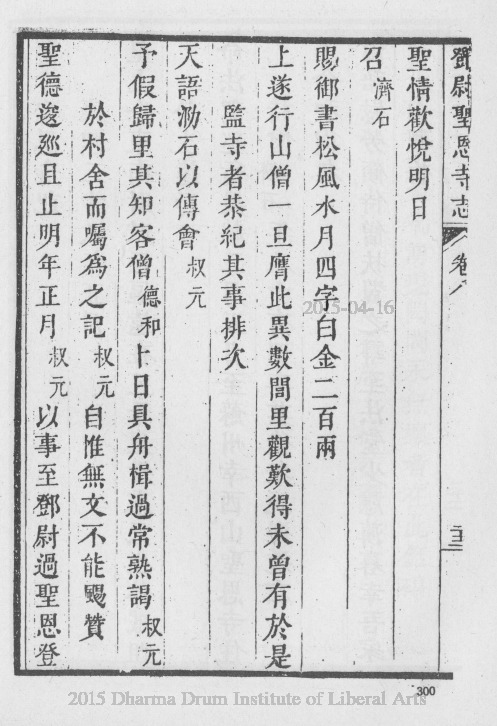 鄧尉聖恩寺志 卷八 二三
聖情歡悅明日
召濟石
賜御書松風水月四字白金二百兩
上遂行山僧一旦膺此異數閭里觀歎得未曾有於是
監寺者恭紀其事排次
天語泐石以傳會叔元
予假歸里其知客僧德和卜日具舟楫過常熟謁叔元
於村舍而囑為之記叔元自惟無文不能颺贊
聖德逡廵且止明年正月叔元以事至鄧尉過聖恩登
300
2015-04-16
2015 Dharma Drum Institute of Liberal Arts